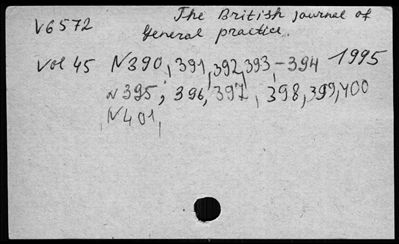 V6572 The British journal of
general practice.
Vol 45 N390, 391, 392, 393, -394 1995
N395, 396, 397, 398, 399, 400
N401,